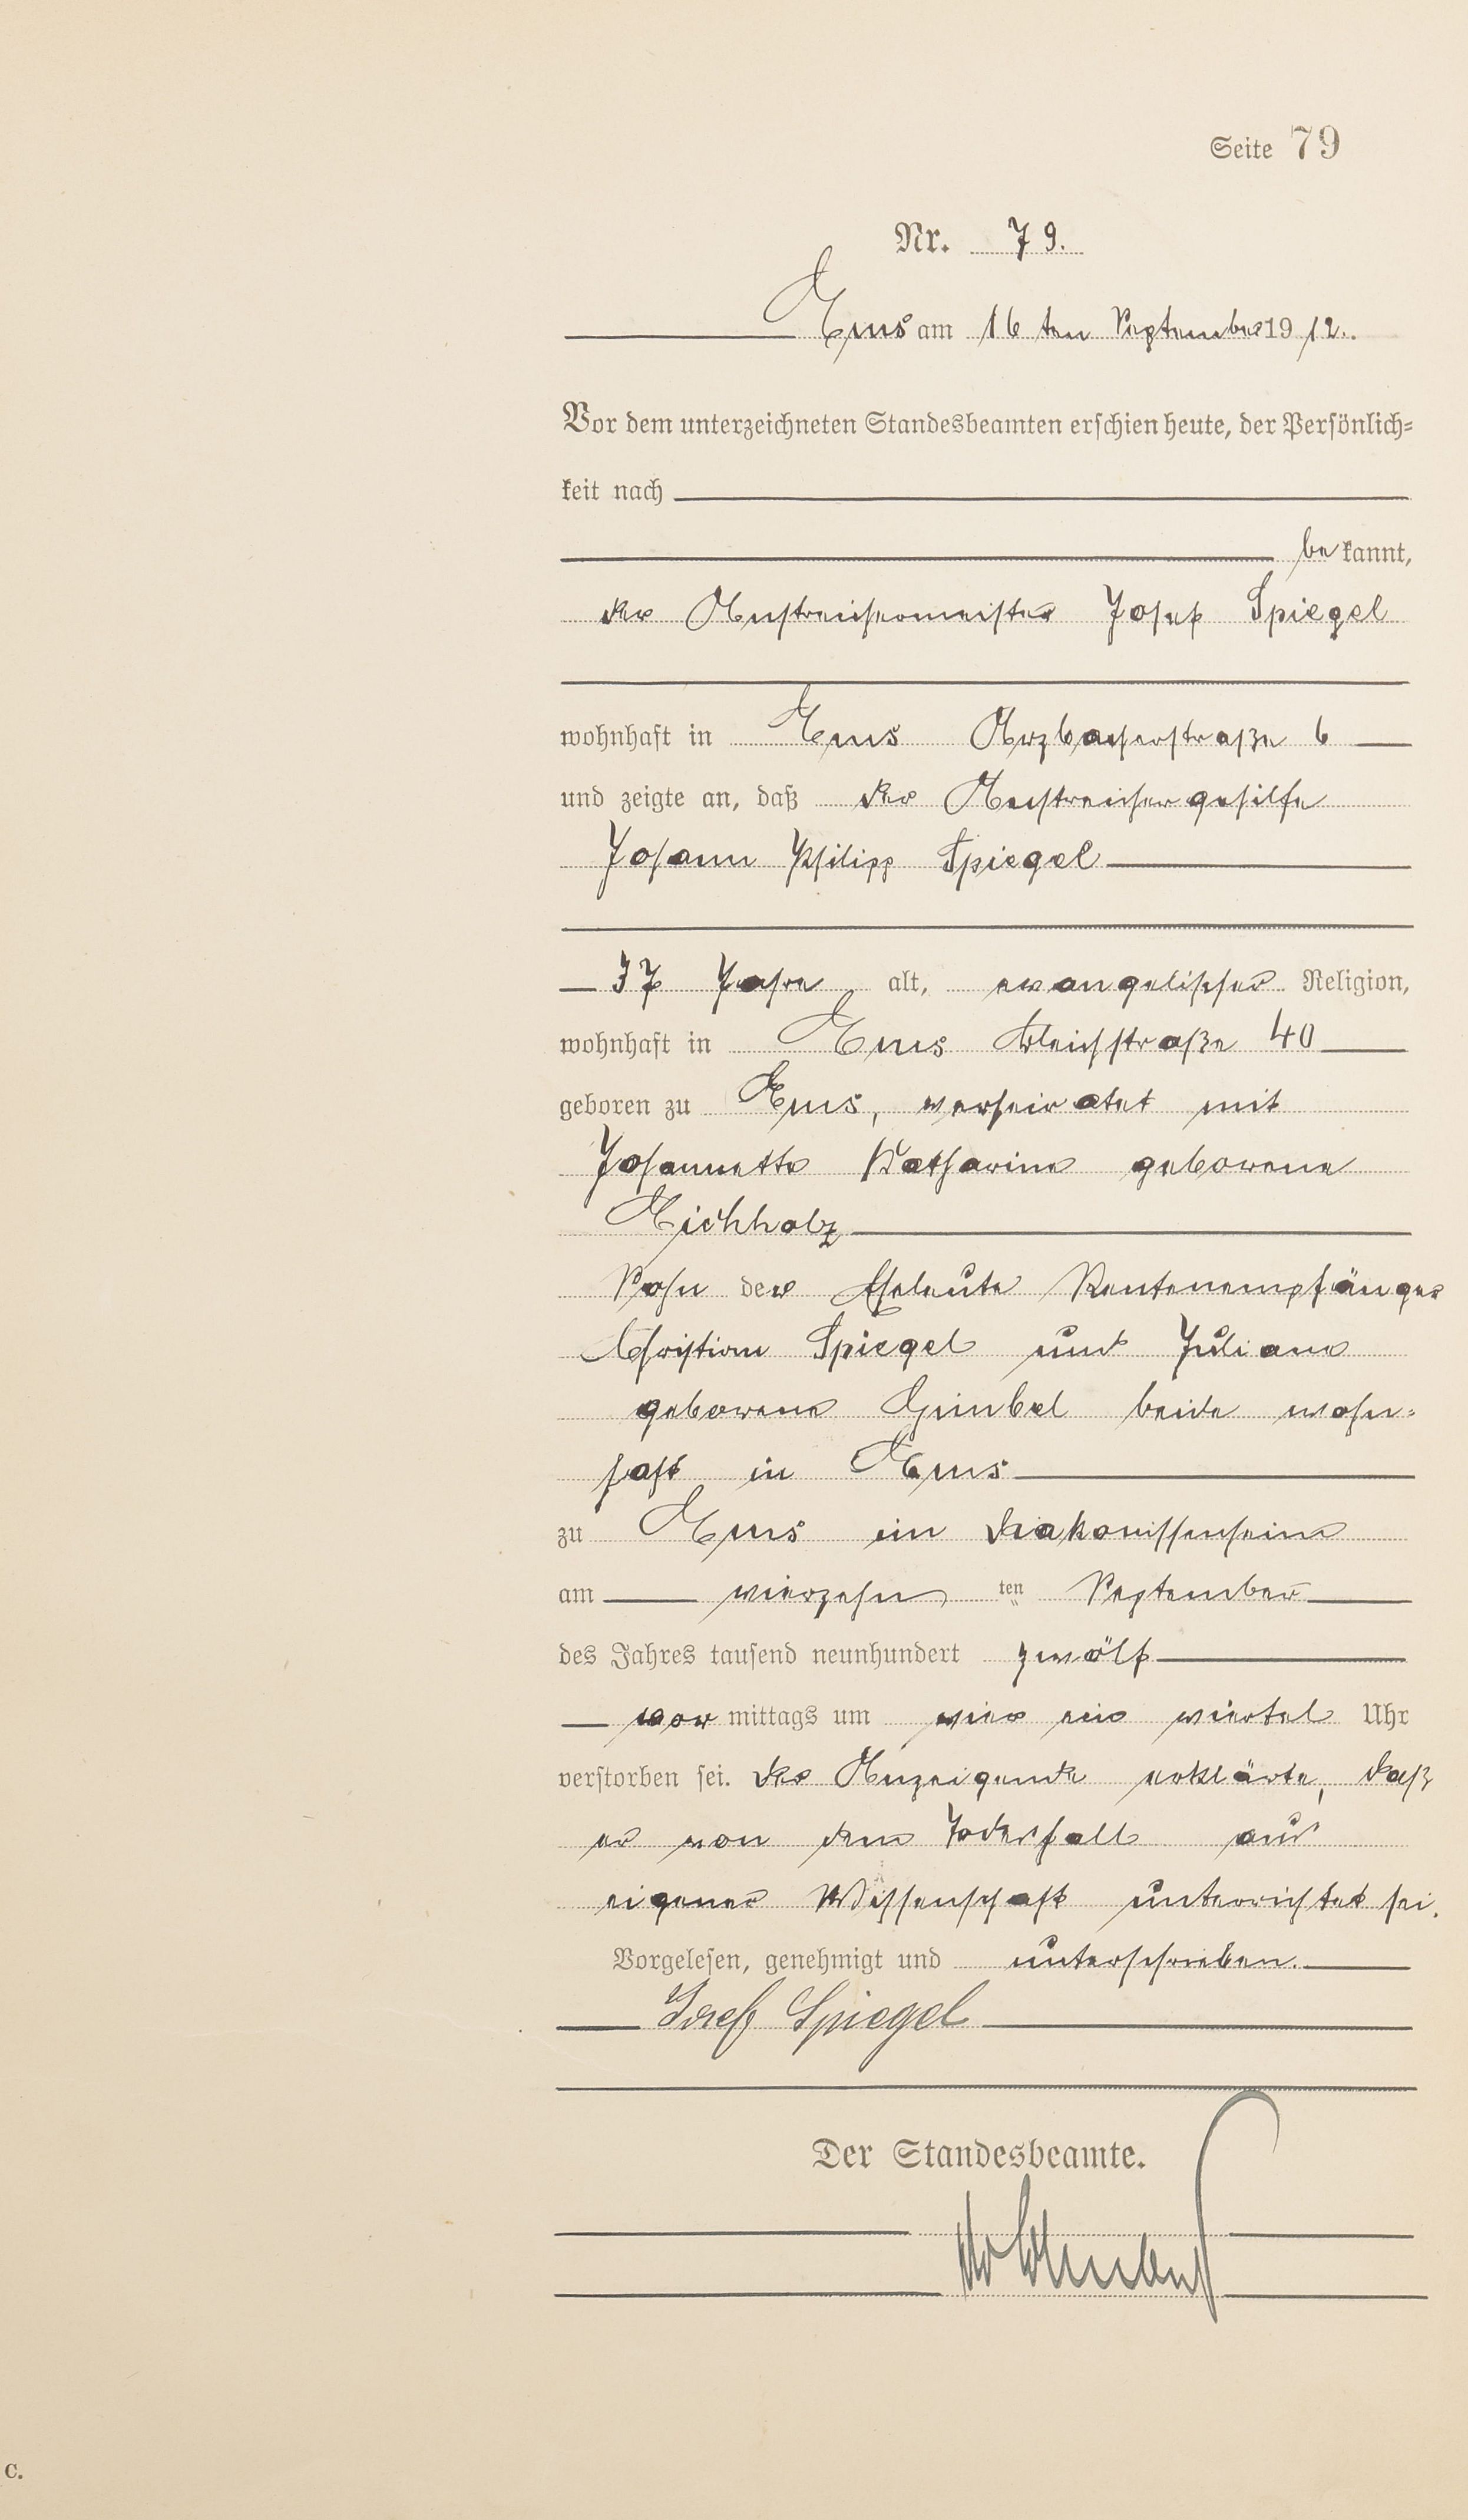 Seite 79
Nr. 79.
Ems am 16 ten September 1912.
Vor dem unterzeichneten Standesbeamten erschien heute, der Persönlich=
keit nach
bekannt,
der Anstreichermeister Josef Spiegel
wohnhaft in Ems Arzbacherstraße 6
und zeigte an, daß der Anstreichergehilfe
Johann Philipp Spiegel
37 Jahre alt, evangelischer Religion,
wohnhaft in Ems Bleichstraße 40
geboren zu Ems, verheiratet mit
Johannette Katharina geborene
Eichholz
Sohn der Eheleute Rentenempfänger
Christian Spiegel und Juliane
geborene Gimbel beide wohn=
haft in Ems
zu Ems im Diakonissenheim
am vierzehn ten September
des Jahres tausend neunhundert zwölf
vor mittags um vier ein viertel Uhr
verstorben sei. Der Anzeigende erklärte, daß
er von dem Todesfall aus
eigener Wissenschaft unterrichtet sei.
Vorgelesen, genehmigt und unterschrieben.
Josef Spiegel
Der Standesbeamte.
C.